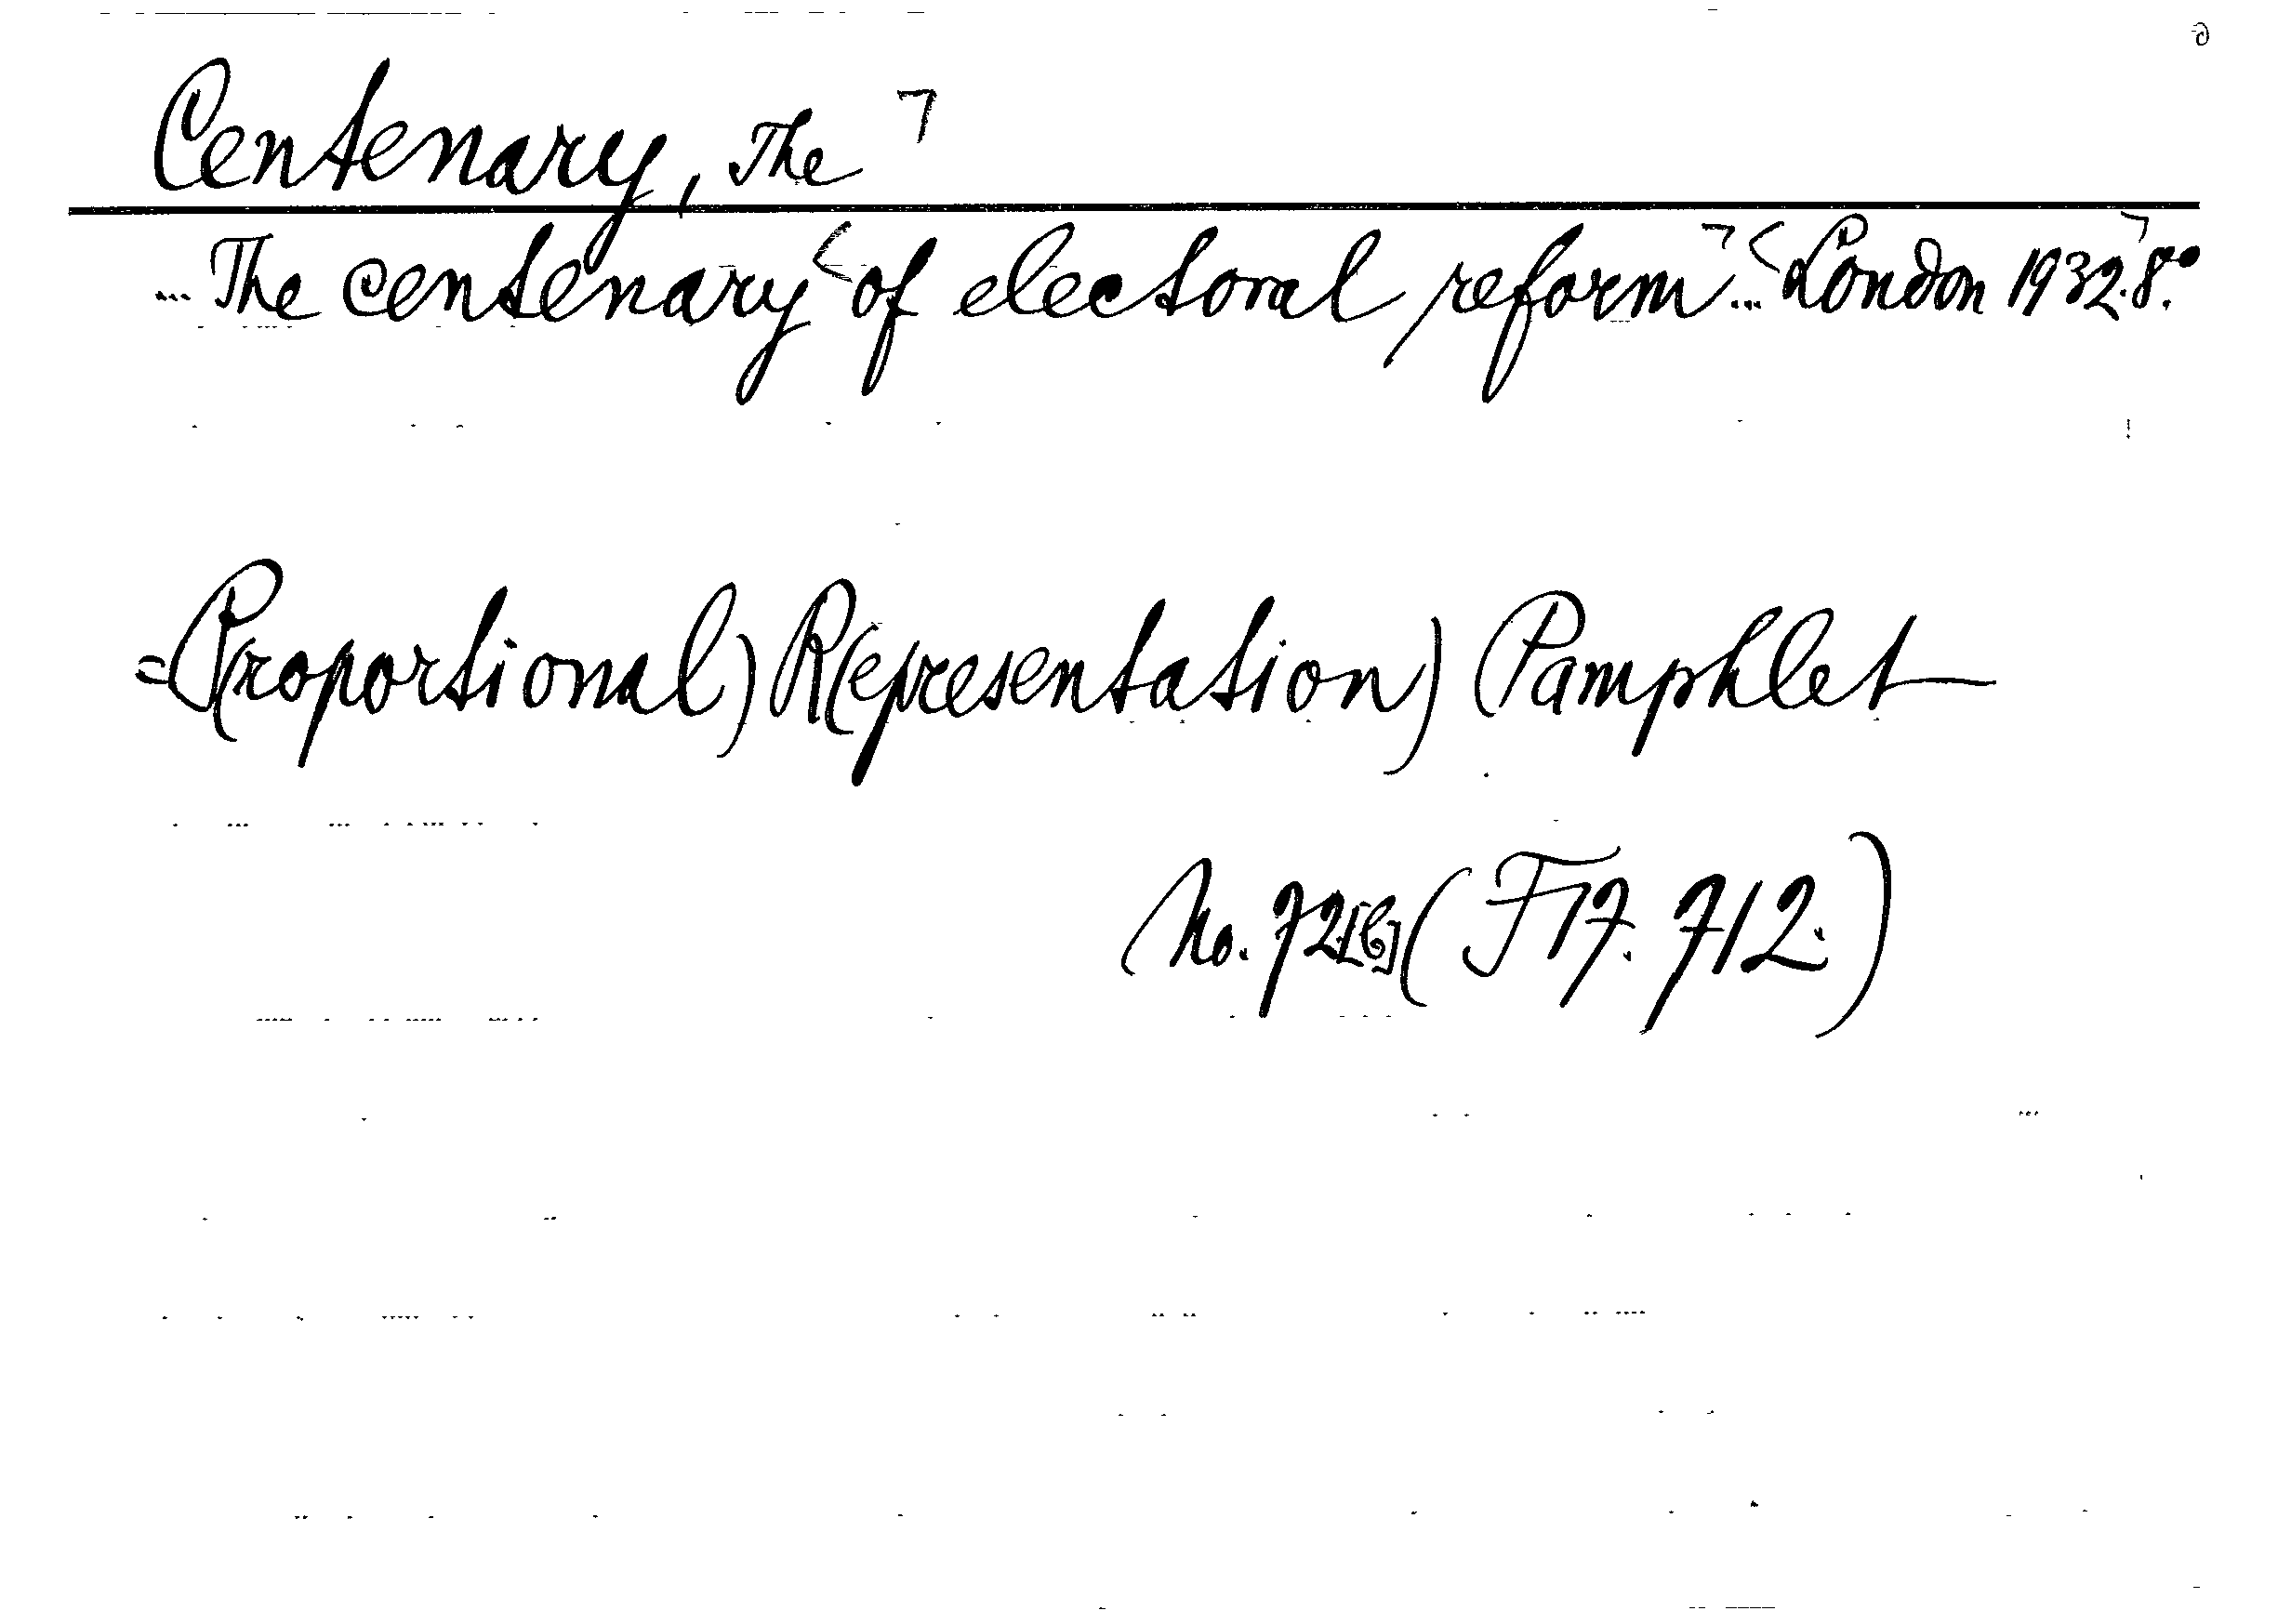 Centenary, The
... The centenary of electoral reform ... London 1932. 8°.
=P(roportional) R(epresentation) Pamphlet
No. 72[b] (F17. 712.)